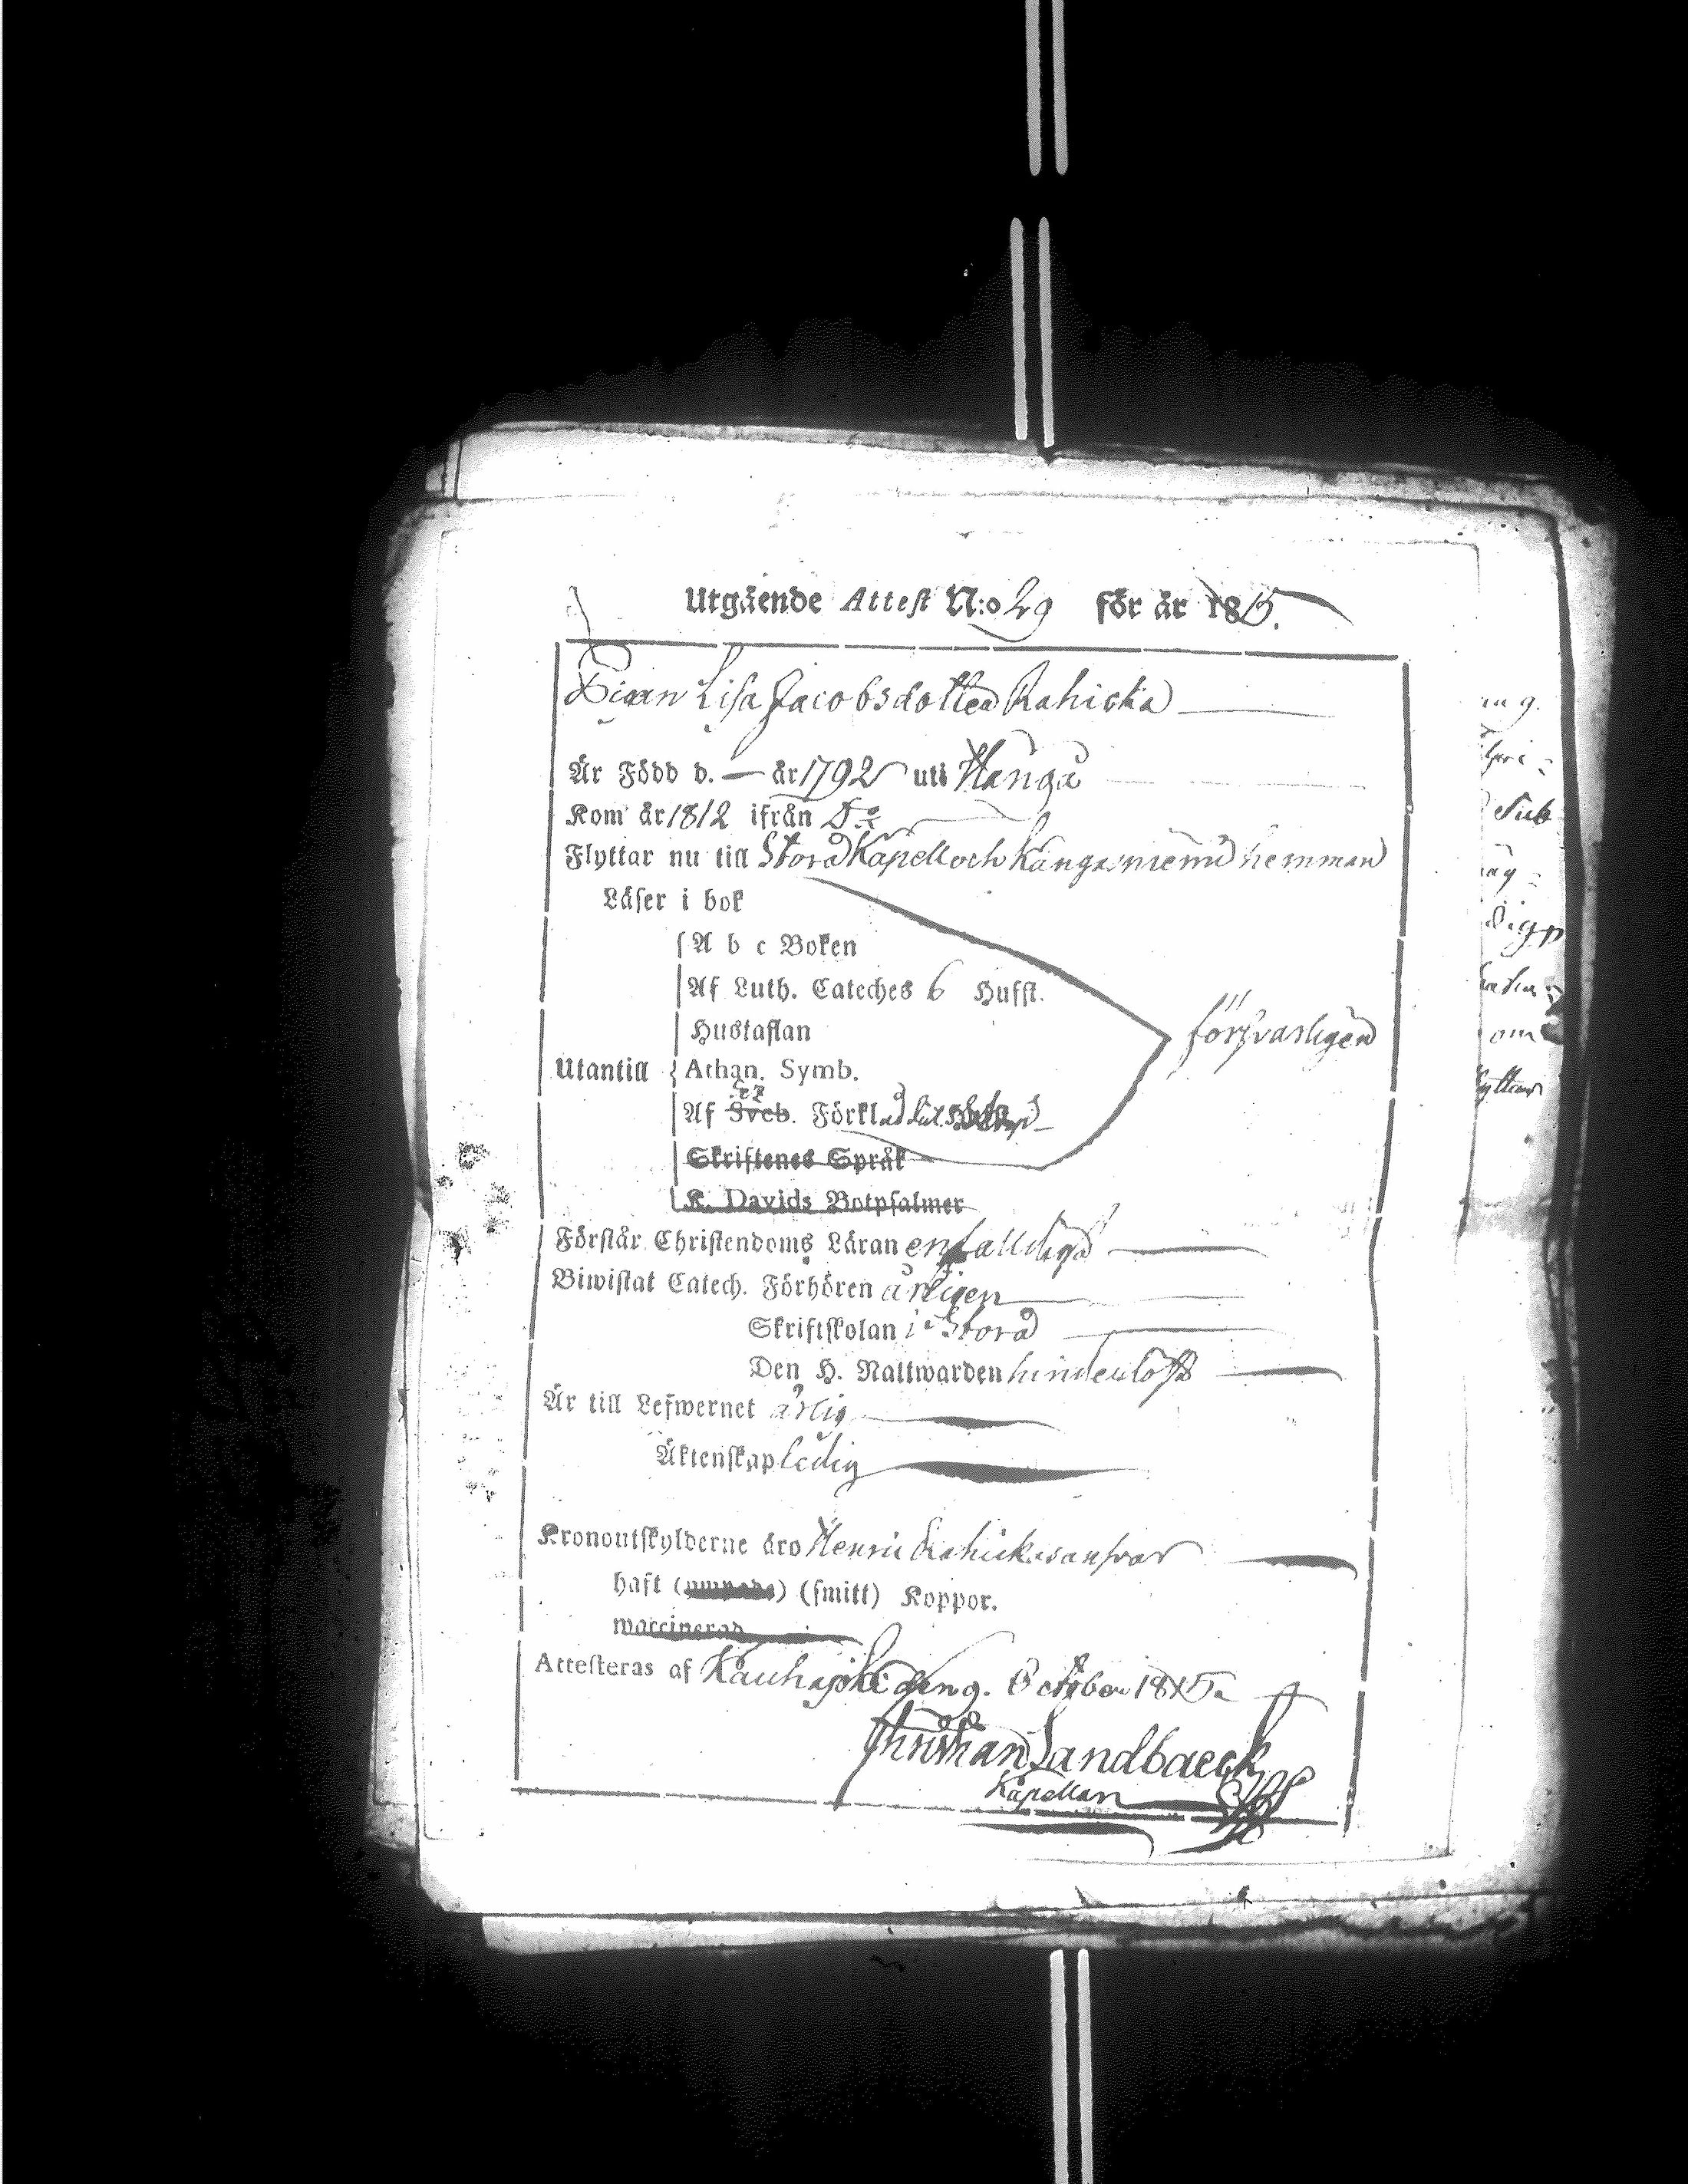 Utgående Attest N:o 29 för år 1815.
Pigan Lisa Jacobsdotter Rahicka
Är Född d. — år 1792 uti Kånga
Kom år 1812 ifrån Do
Flyttar nu till Storå Kapell och Kangasniemi hemman
Läser i bok
A b c Boken
Af Luth. Cateches 6 Hufst.
Hustaflan
förswarligen
Utantill Athan. Symb.
Af Sveb. Förkl.
Skriftenes Språk
K. Davids Botpsalmer
Förstår Christendoms Läran enfalldigt
Biwistat Catech. Förhören årligen
Skriftskolan i Storå
Den H. Nattwarden hinderlöst
Är till Lefwernet ärlig
Äktenskap ledig
Kronoutskylderne äro Henric Rahickas answar
haft () (smitt) Koppor.
waccinerad
Attesteras af Kauhajoki den 9. October 1815.
Christian Sandbaeck
Kapellan